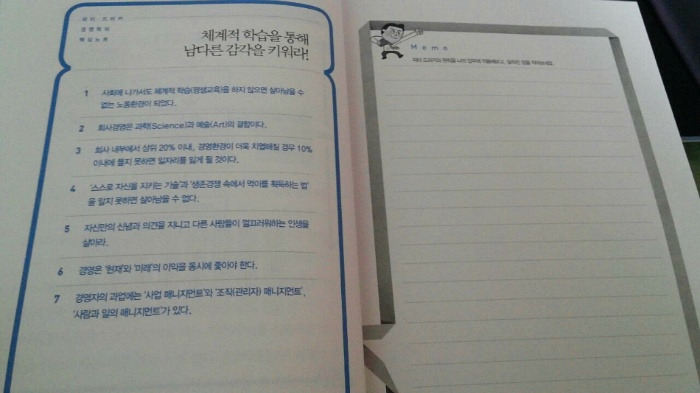 피터 드러커
경영학의
핵심노트
체계적 학습을 통해
남다른 감각을 키워라!
1 사회에 나가서도 체계적 학습(평생교육)을 하지 않으면 살아남을 수
없는 노동환경이 되었다.
2 회사경영은 과학(Science)과 예술(Art)의 결합이다.
3 회사 내부에서 상위 20% 이내, 경영환경이 더욱 치열해질 경우 10%
이내에 들지 못하면 일자리를 잃게 될 것이다.
4 '스스로 자신을 지키는 기술'과 '생존경쟁 속에서 먹이를 획득하는 법'
을 알지 못하면 살아남을 수 없다.
5 자신만의 신념과 의견을 지니고 다른 사람들이 껄끄러워하는 인생을
살아라.
6 경영은 '현재'와 '미래'의 이익을 동시에 좇아야 한다.
7 경영자의 과업에는 '사업 매니지먼트'와 '조직(관리자) 매니지먼트',
'사람과 일의 매니지먼트'가 있다.
Memo
피터 드러커의 원칙을 나의 업무에 적용해보고, 실천할 점을 적어보세요.